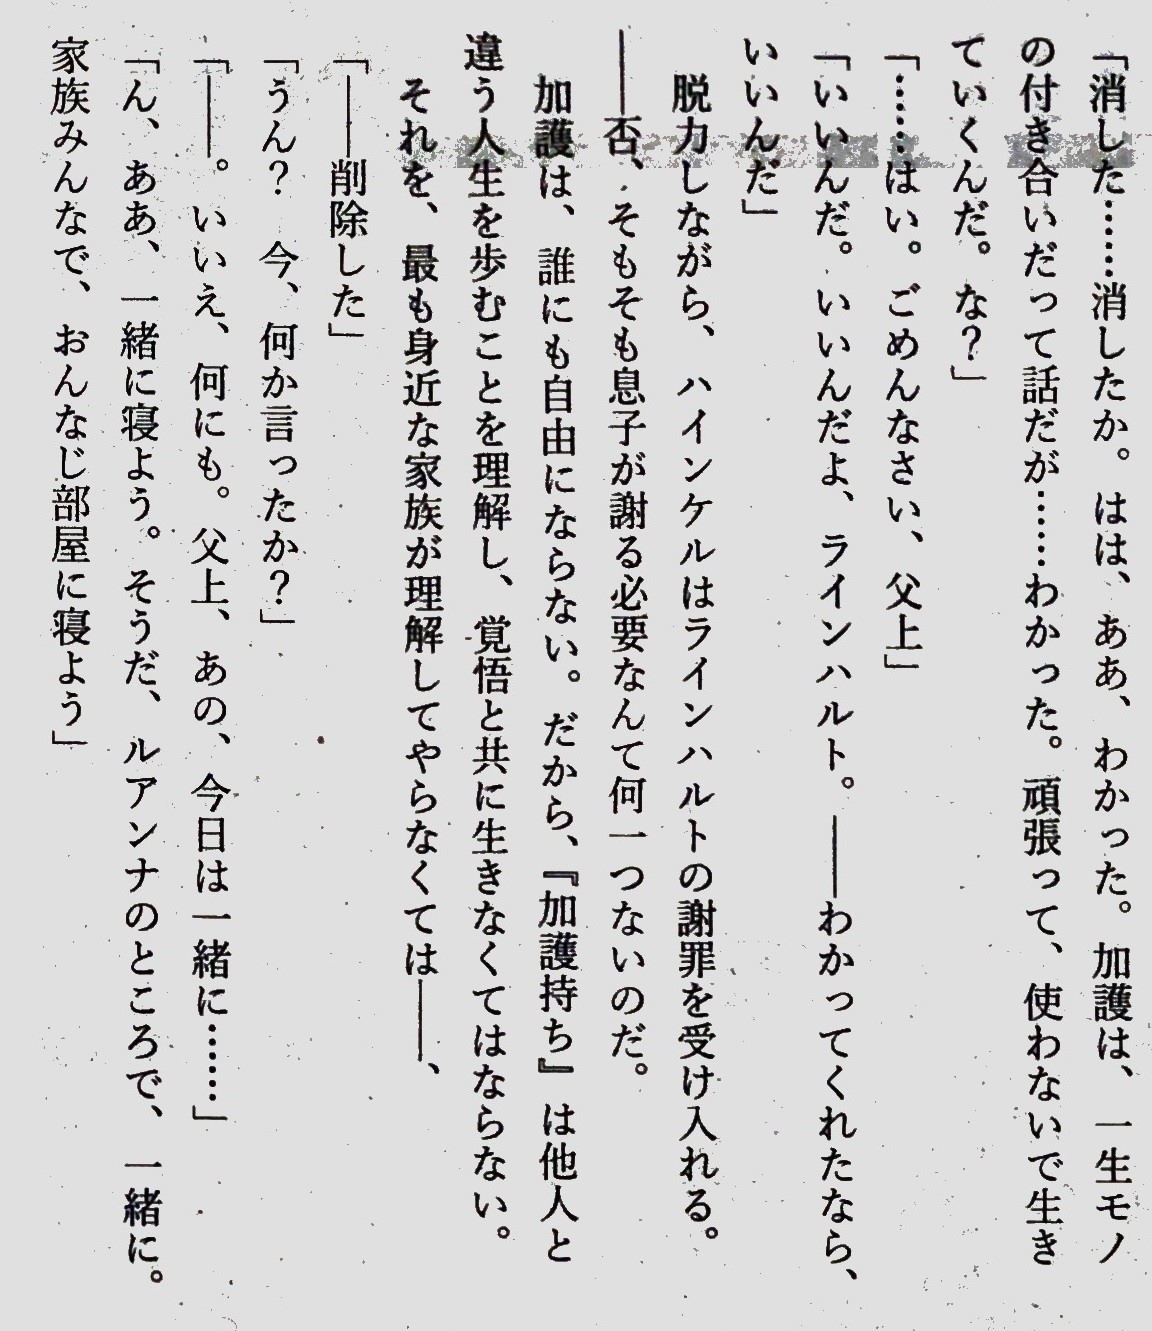 「消した……消したか。はは、ああ、わかった。加護は、一生モノ
の付き合いだって話だが……わかった。頑張って、使わないで生き
ていくんだ。な？」
「……はい。ごめんなさい、父上」
「いいんだ。いいんだよ、ラインハルト。――わかってくれたなら、
いいんだ」
　脱力しながら、ハインケルはラインハルトの謝罪を受け入れる。
――否、そもそも息子が謝る必要なんて何一つないのだ。
　加護は、誰にも自由にならない。だから、『加護持ち』は他人と
違う人生を歩むことを理解し、覚悟と共に生きなくてはならない。
　それを、最も身近な家族が理解してやらなくては――、
「――削除した」
「うん？　今、何か言ったか？」
「――。いいえ、何にも。父上、あの、今日は一緒に……」
「ん、ああ、一緒に寝よう。そうだ、ルアンナのところで、一緒に。
家族みんなで、おんなじ部屋に寝よう」